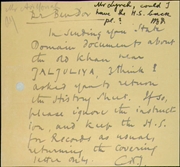 Mr Lynch, could I
have the H.S. Ench
pl.?
Dr Bendor
In sending you State
Domain documents about
the old Khan near
JALJULIYA, I think I
asked you to return
the History Sheet. If so,
please ignore the instruction
and keep the H.S.
for Records as usual,
returning the covering
letter only.